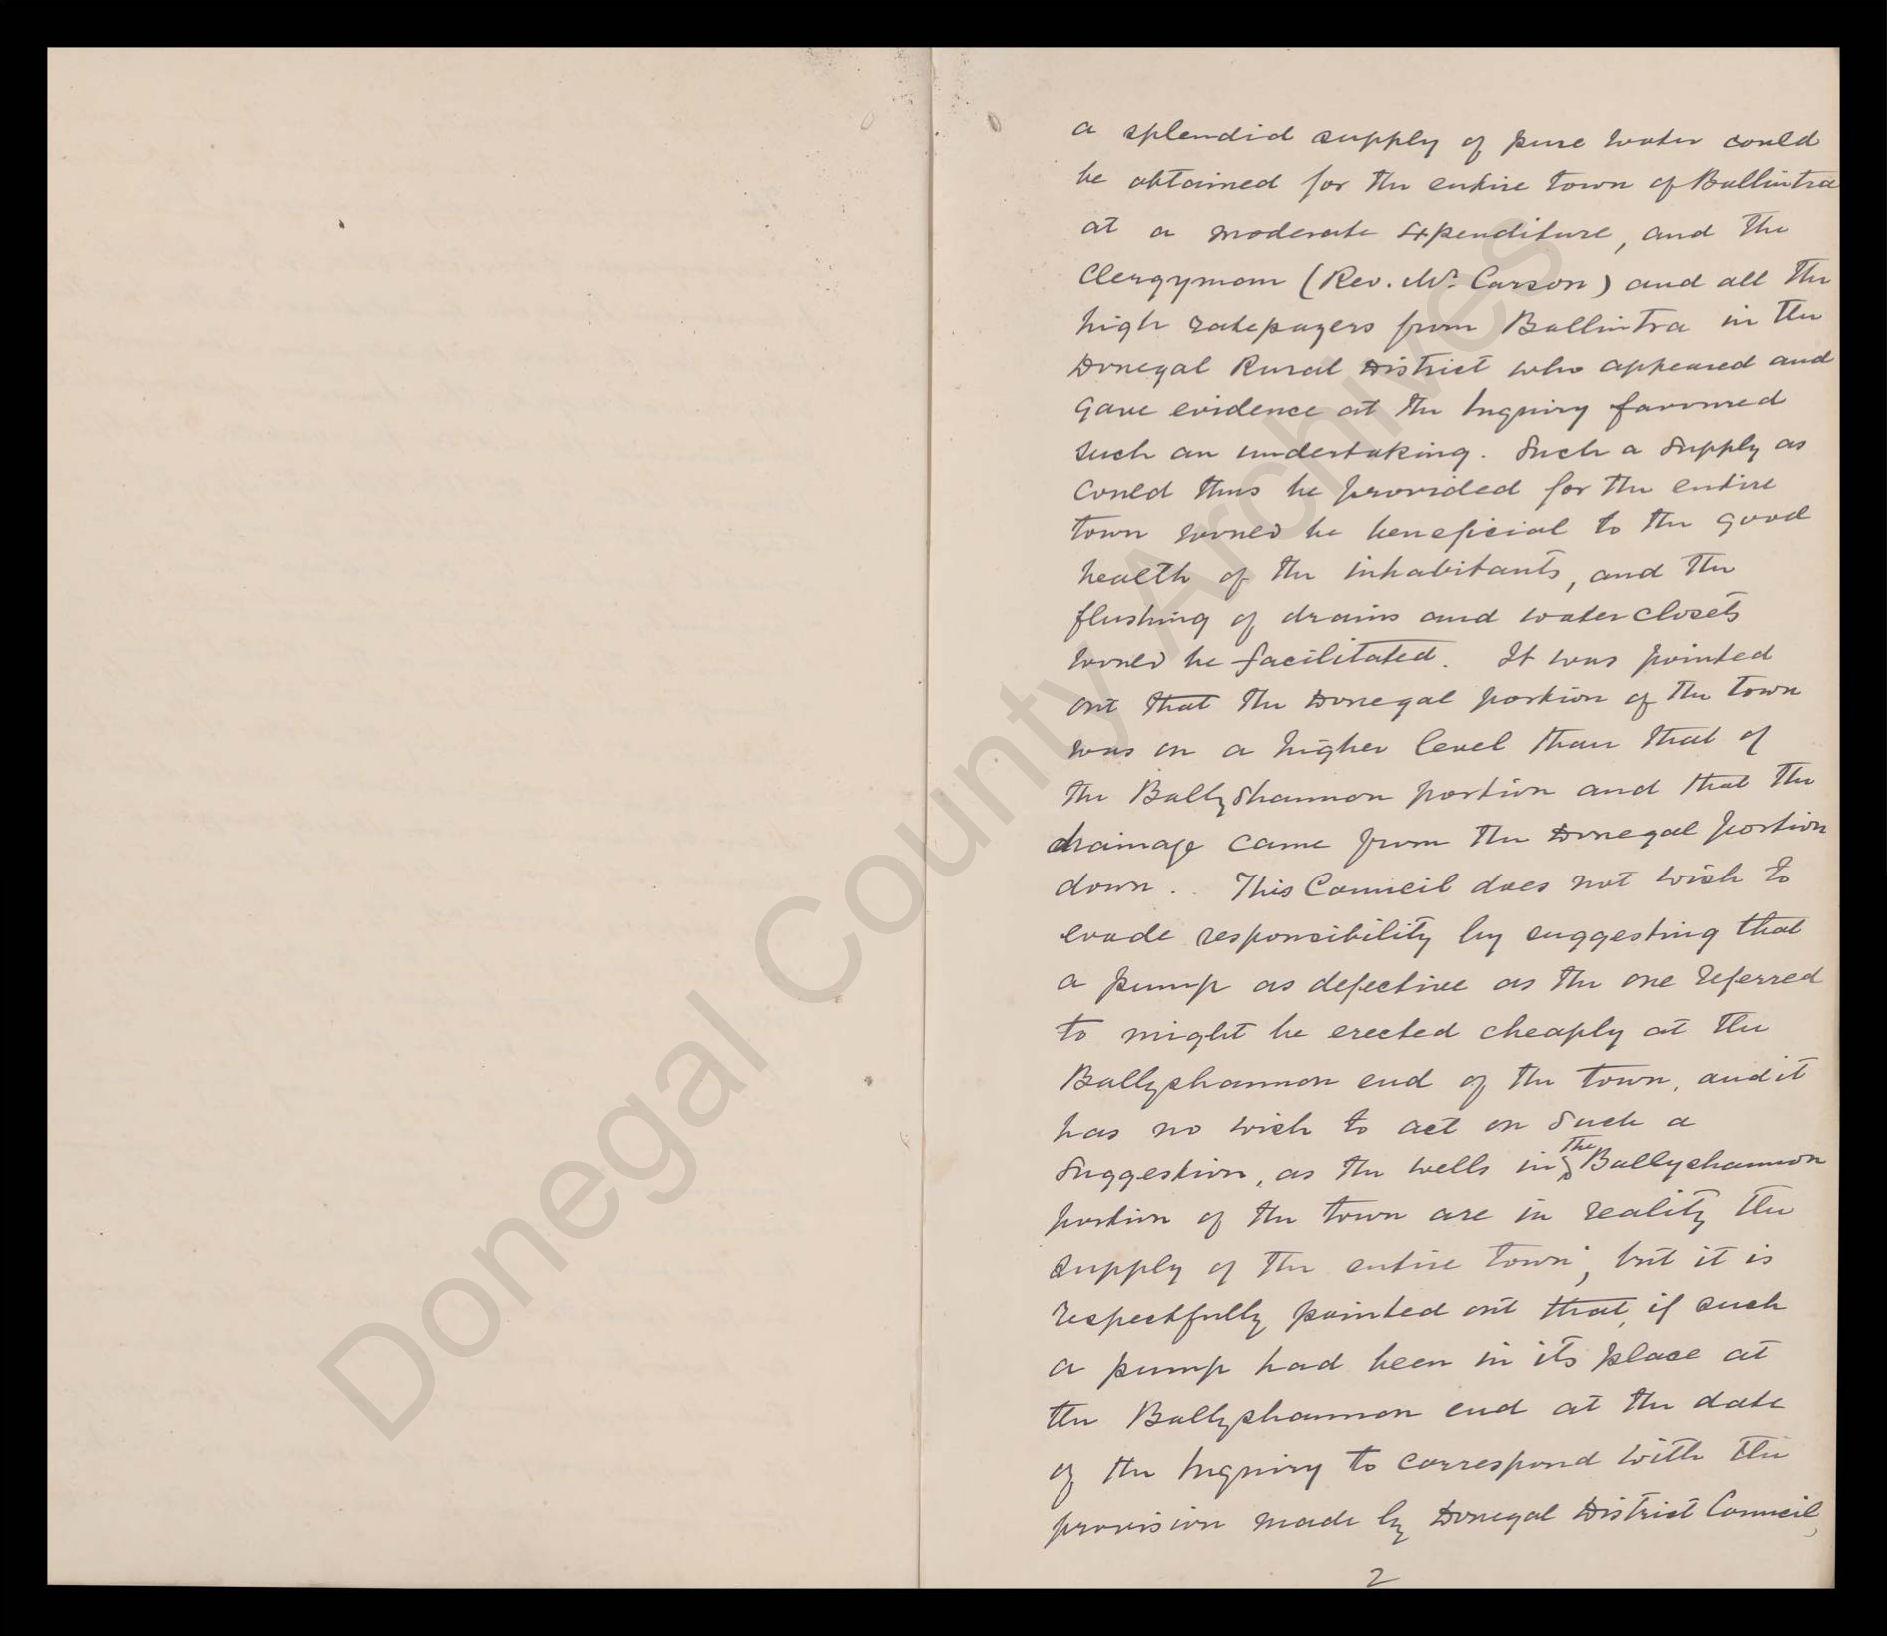 a splendid supply of pure water could
be obtained for the entire town of Ballintra
at a moderate expenditure, and the
Clergyman (Rev. Mr. Carson) and all the
high ratepayers from Ballintra in the
Donegal Rural District who appeared and
gave evidence at the Inquiry favoured
such an undertaking. Such a supply as
could thus be provided for the entire
town would be beneficial to the good
health of the inhabitants, and the
flushing of drains and waterclosets
would be facilitated. It was pointed
out that the Donegal portion of the town
was on a higher level than that of
the Ballyshannon portion and that the
drainage came from the Donegal portion
down. This Council does not wish to
evade responsibility by suggesting that
a pump as defective as the one referred
to might be erected cheaply at the
Ballyshannon end of the town, and it
has no wish to act on such a
suggestion, as the wells in the Ballyshannon
portion of the town are in reality the
supply of the entire town; but it is
respectfully pointed out that, if such
a pump had been in its place at
the Ballyshannon end at the date
of the Inquiry to correspond with the
provision made by Donegal District Council,
2
Donegal County Archives